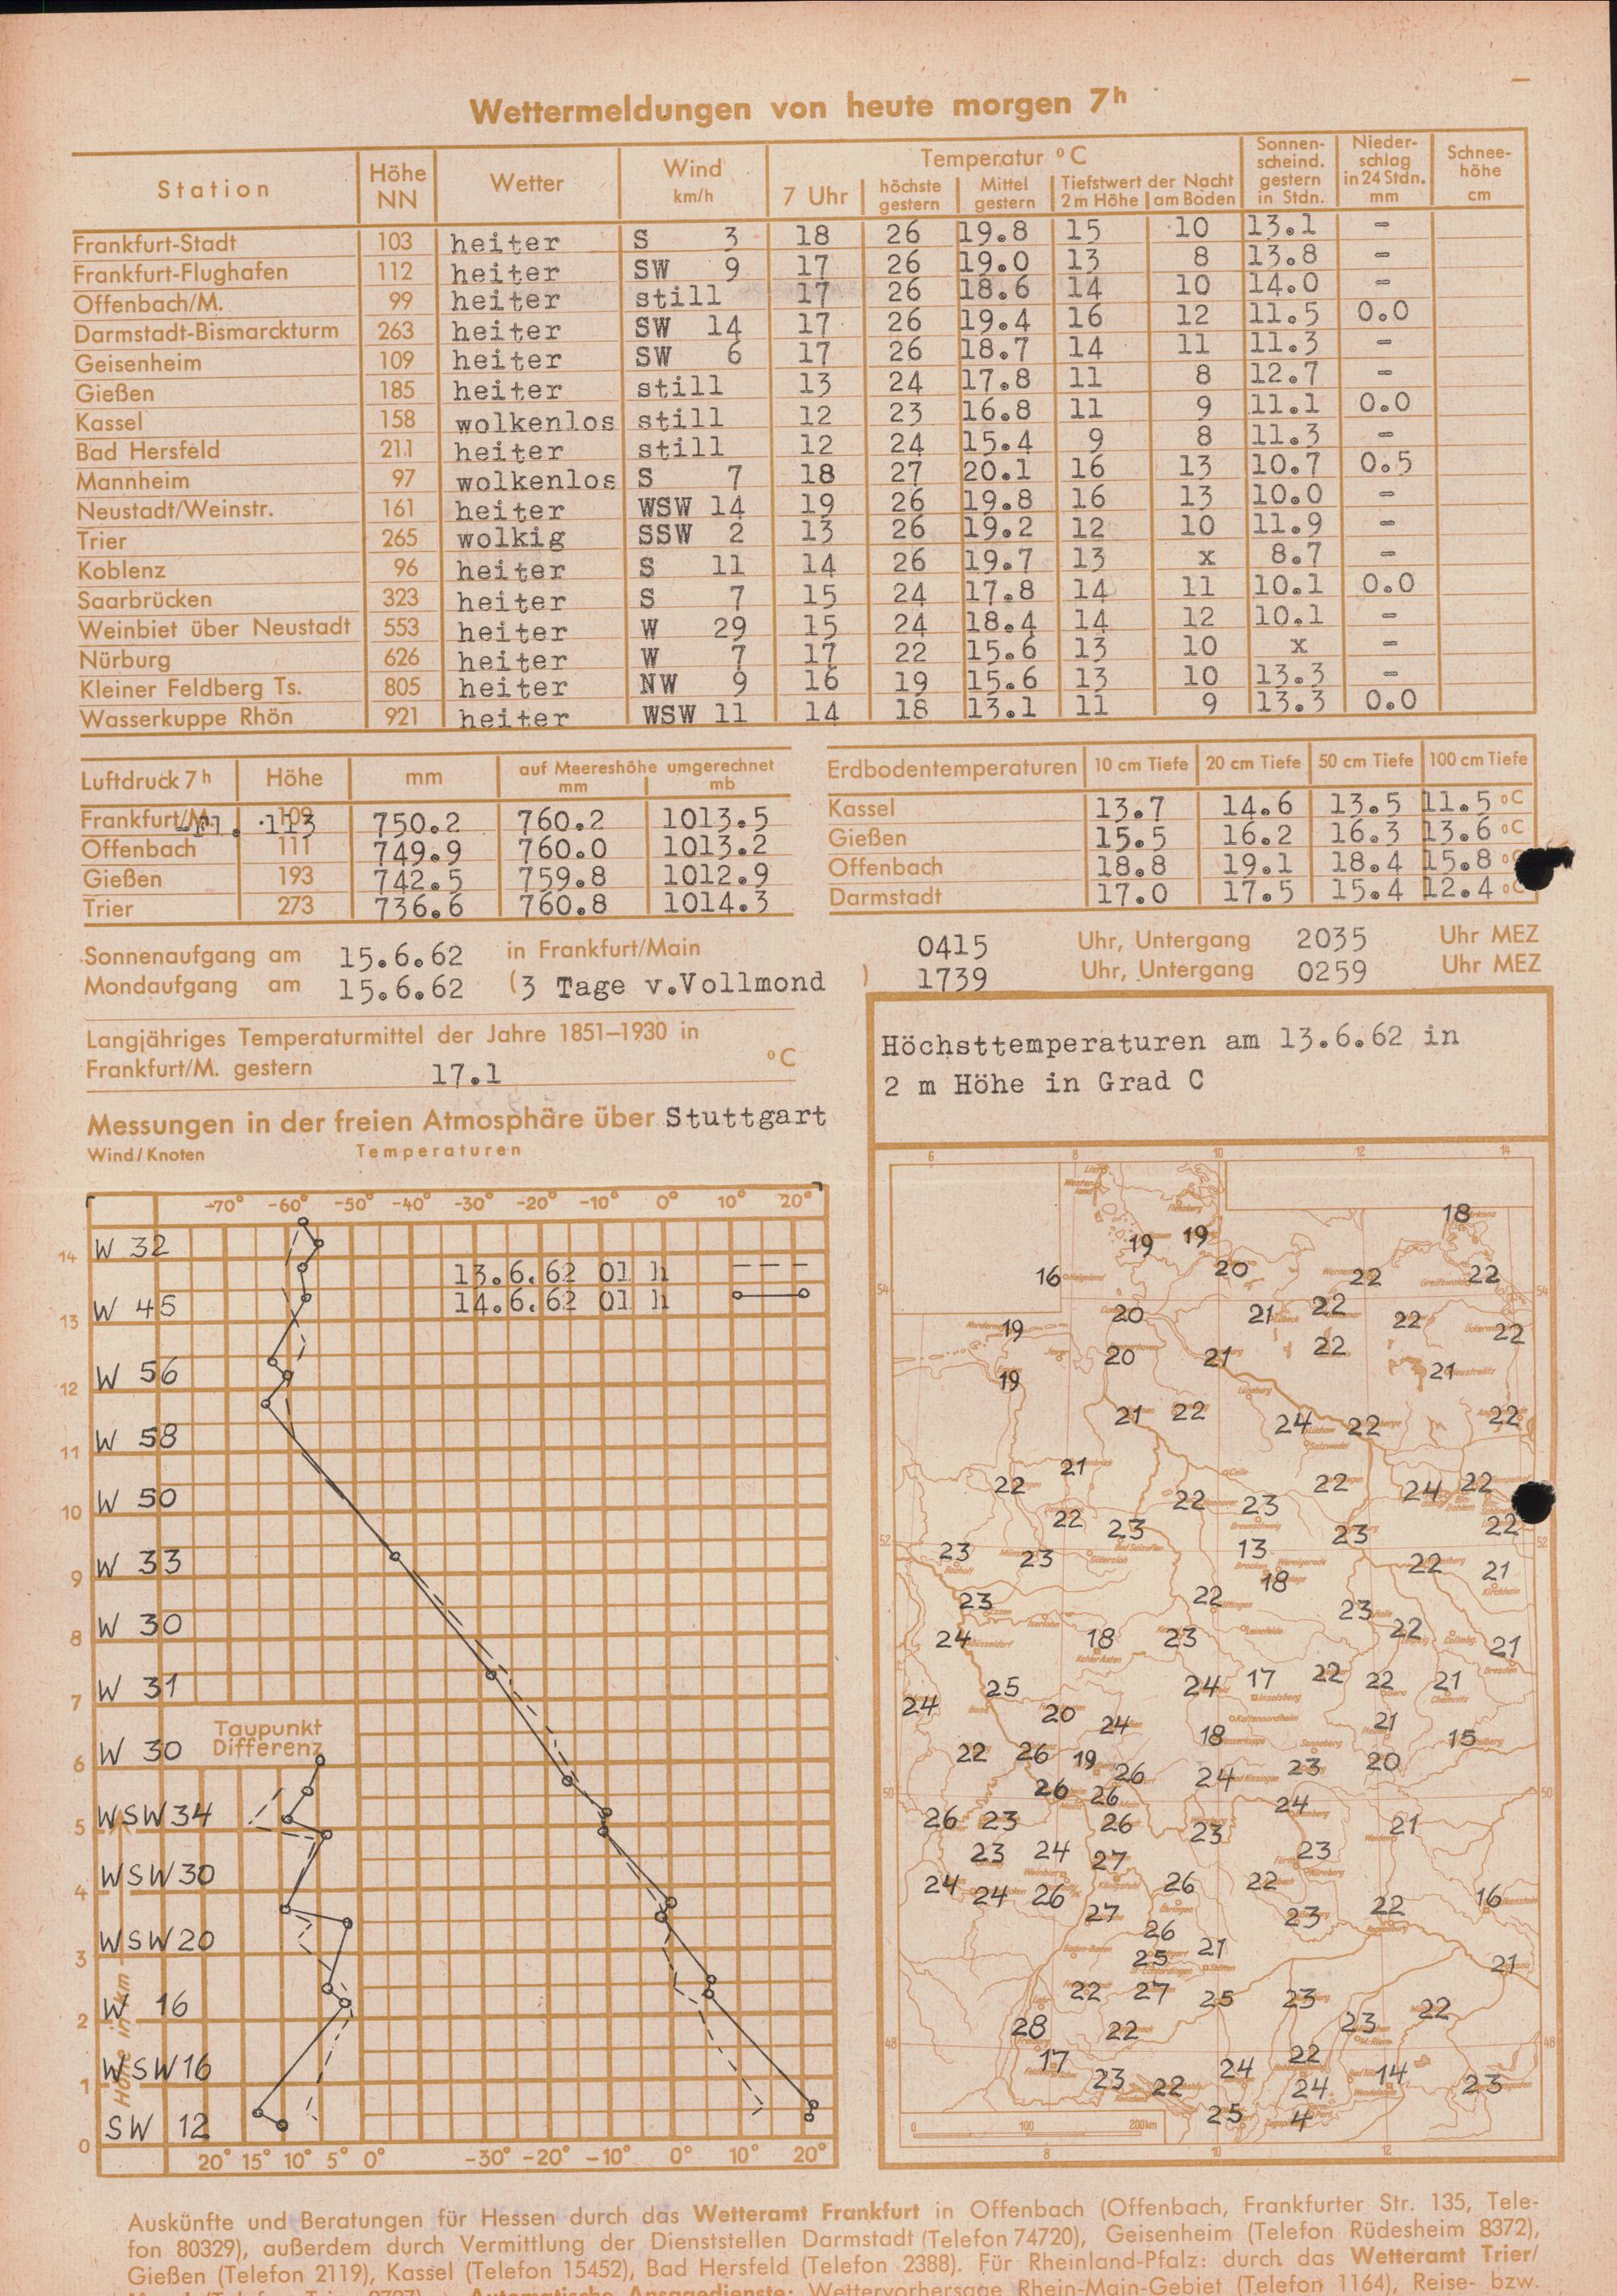 Wettermeldungen von heute morgen 7h
Station Höhe NN Wetter Wind km/h Temperatur °C Sonnenscheind. gestern in Stdn. Niederschlag in 24 Stdn. mm Schneehöhe cm
7 Uhr höchste gestern Mittel gestern Tiefstwert der Nacht 2 m Höhe am Boden
Frankfurt-Stadt 103 heiter S 3 18 26 19.8 15 10 13.1 -
Frankfurt-Flughafen 112 heiter SW 9 17 26 19.0 13 8 13.8 -
Offenbach/M. 99 heiter still 17 26 18.6 14 10 14.0 -
Darmstadt-Bismarckturm 263 heiter SW 14 17 26 19.4 16 12 11.5 0.0
Geisenheim 109 heiter SW 6 17 26 18.7 14 11 11.3 -
Gießen 185 heiter still 13 24 17.8 11 8 12.7 -
Kassel 158 wolkenlos still 12 23 16.8 11 9 11.1 0.0
Bad Hersfeld 211 heiter still 12 24 15.4 9 8 11.3 -
Mannheim 97 wolkenlos S 7 18 27 20.1 16 13 10.7 0.5
Neustadt/Weinstr. 161 heiter WSW 14 19 26 19.8 16 13 10.0 -
Trier 265 wolkig SSW 2 13 26 19.2 12 10 11.9 -
Koblenz 96 heiter S 11 14 26 19.7 13 x 8.7 -
Saarbrücken 323 heiter S 7 15 24 17.8 14 11 10.1 0.0
Weinbiet über Neustadt 553 heiter W 29 15 24 18.4 14 12 10.1 -
Nürburg 626 heiter W 7 17 22 15.6 13 10 x -
Kleiner Feldberg Ts. 805 heiter NW 9 16 19 15.6 13 10 13.3 -
Wasserkuppe Rhön 921 heiter WSW 11 14 18 13.1 11 9 13.3 0.0
Luftdruck 7h Höhe mm auf Meereshöhe umgerechnet mm mb
Frankfurt/M. 113 750.2 760.2 1013.5
Offenbach 111 749.9 760.0 1013.2
Gießen 193 742.5 759.8 1012.9
Trier 273 736.6 760.8 1014.3
Erdbodentemperaturen 10 cm Tiefe 20 cm Tiefe 50 cm Tiefe 100 cm Tiefe
Kassel 13.7 14.6 13.5 11.5 °C
Gießen 15.5 16.2 16.3 13.6 °C
Offenbach 18.8 19.1 18.4 15.8 °C
Darmstadt 17.0 17.5 15.4 12.4 °C
Sonnenaufgang am 15.6.62 in Frankfurt/Main 0415 Uhr, Untergang 2035 Uhr MEZ
Mondaufgang am 15.6.62 (3 Tage v.Vollmond ) 1739 Uhr, Untergang 0259 Uhr MEZ
Langjähriges Temperaturmittel der Jahre 1851–1930 in
Frankfurt/M. gestern 17.1 °C
Messungen in der freien Atmosphäre über Stuttgart
Wind/Knoten Temperaturen
-70° -60° -50° -40° -30° -20° -10° 0° 10° 20°
14 W 32
13.6.62 01 h
14.6.62 01 h
13 W 45
12 W 56
11 W 58
10 W 50
9 W 33
8 W 30
7 W 31
Taupunkt
Differenz
6 W 30
5 WSW 34
4 WSW 30
3 WSW 20
2 W 16
1 WSW 16
0 SW 12
Höhe in km
20° 15° 10° 5° 0° -30° -20° -10° 0° 10° 20°
Höchsttemperaturen am 13.6.62 in
2 m Höhe in Grad C
6 8 10 12 14
18
19 19
16 20 22 22
54 54
20 21 22 22
19 20 21 22 22
19 21
21 22 24 22 22
21
22 22 24 22
22 23
22 23 23 22
52 52
23 23 13 22 21
18
23 22 23
24 18 23 22 21
25 24 17 22 22 21
24 20
24 18 21 15
22 26 19 26 24 23 20
26 26 24
50 50
26 23 26 23 21
23 24 27 23
24 24 26 26 22 16
27 23 22
26
25 21 21
22 27 25 23
28 22 23 22
48 48
17 22
23 22 24 24 14 23
25 4
0 100 200km
8 10 12
Auskünfte und Beratungen für Hessen durch das Wetteramt Frankfurt in Offenbach (Offenbach, Frankfurter Str. 135, Tele-
fon 80329), außerdem durch Vermittlung der Dienststellen Darmstadt (Telefon 74720), Geisenheim (Telefon Rüdesheim 8372),
Gießen (Telefon 2119), Kassel (Telefon 15452), Bad Hersfeld (Telefon 2388). Für Rheinland-Pfalz: durch das Wetteramt Trier/
Automatische Ansagedienste: Wettervorhersage Rhein-Main-Gebiet (Telefon 1164), Reise- bzw.